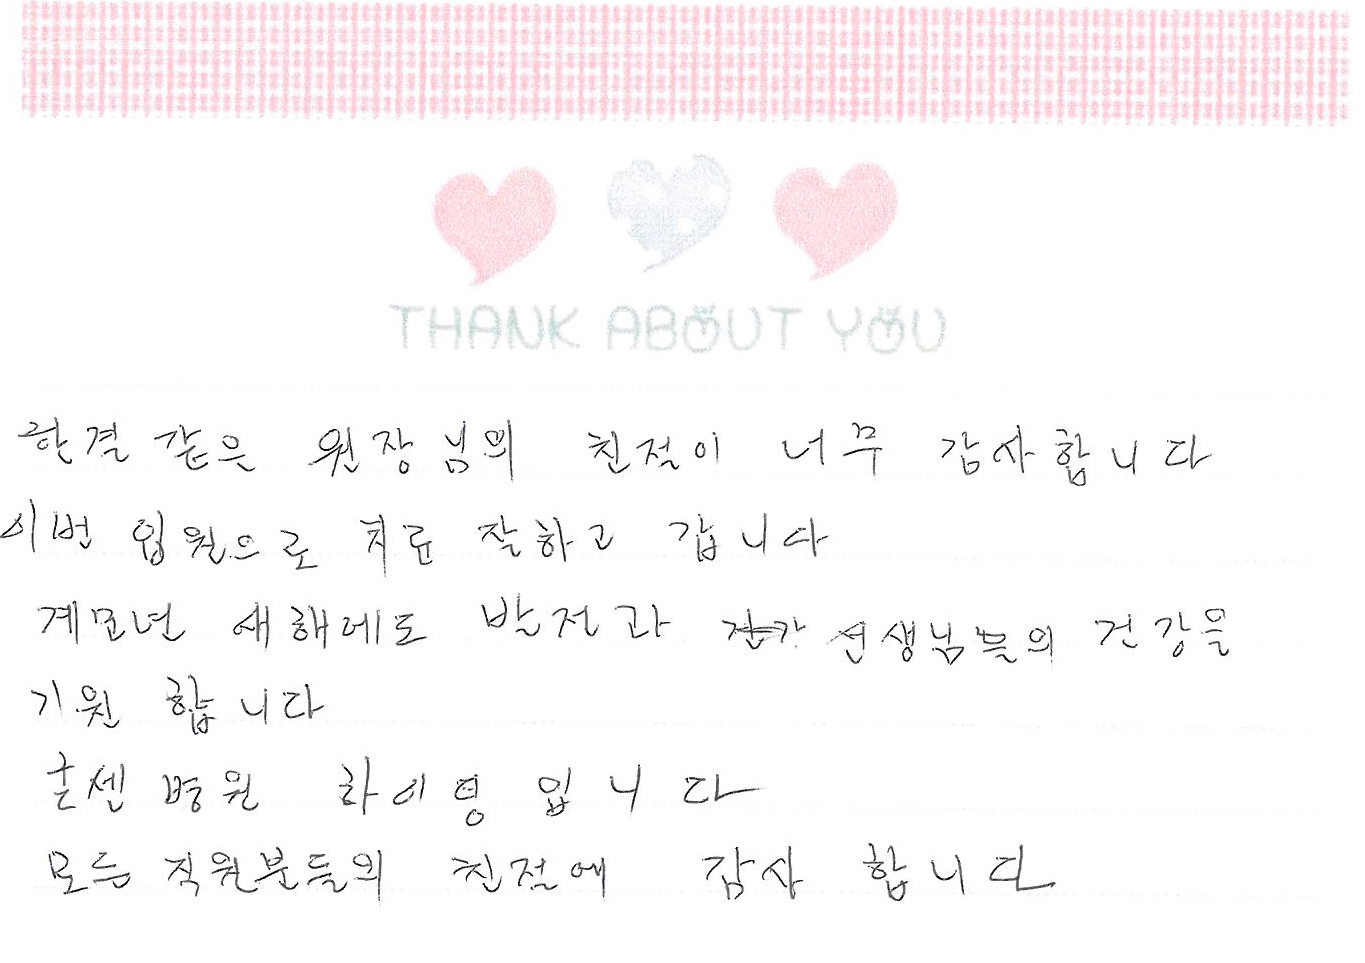 THANK ABOUT YOU
한결 같은 원장님의 친절이 너무 감사합니다
이번 입원으로 치료 잘하고 갑니다
계묘년 새해에도 발전과 선생님들의 건강을
기원 합니다
굳센병원 하이영 입니다
모든 직원분들의 친절에 감사 합니다